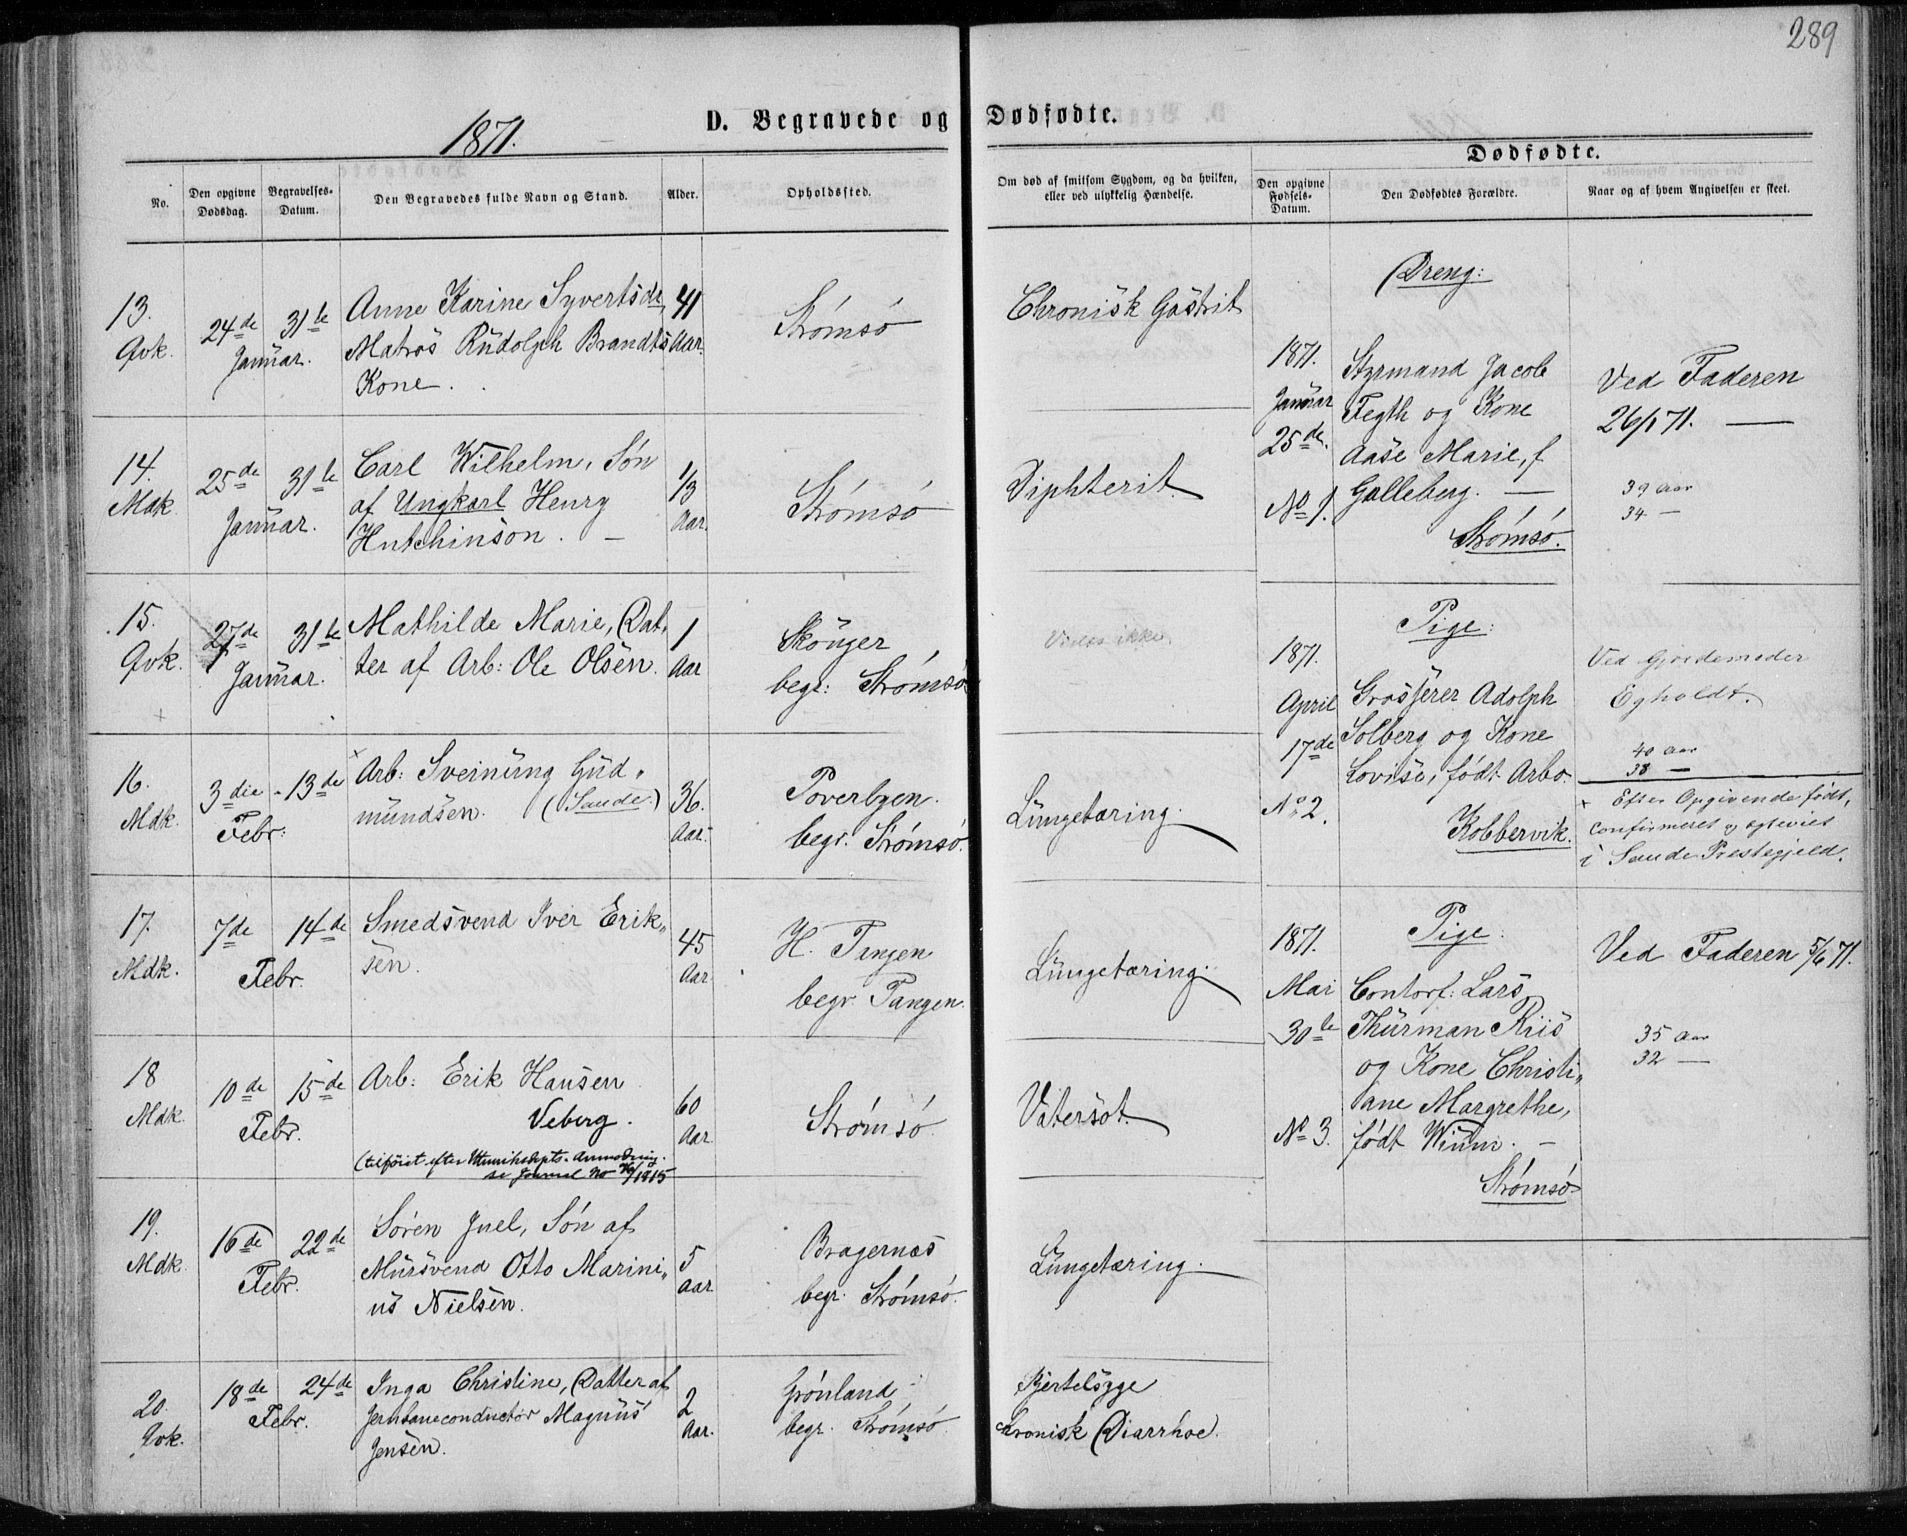 289
1871.
D. Begravede og Dødfødte.
Dødfødte.
No.
Den opgivne Dødsdag.
Begravelses-Datum.
Den Begravedes fulde Navn og Stand.
Alder.
Opholdssted.
Om død af smitsom Sygdom, og da hvilken,
eller ved ulykkelig Hændelse.
Den opgivne Fødsels-Datum.
Den Dødfødtes Forældre.
Naar og af hvem Angivelsen er skeet.
13.
Qvk.
24de 31te
Januar.
Anne Karine Syvertsdr,
Matros Rudolph Brandts
Kone.
41
Aar.
Strømsø
Chronisk Gastrit
14.
Mdk.
25de 31te
Januar.
Carl Wilhelm, Søn
af Ungkarl Henry
Hutchinson. —
1/3
Aar.
Strømsø
Diphterit.
15.
Qvk.
27de 31te
Januar.
Mathilde Marie, Dat-
ter af Arb: Ole Olsen.
1
Aar
Skouger
begr: Strømsø
Vides ikke.
16.
Mdk.
3die - 13de
Febr:
× Arb: Sveinung Gud-
mundsen. (Sande.)
36.
Aar.
Poverbyen.
begr. Strømsø.
Lungetæring.
17.
Mdk.
7de 14de
Febr.
Smedsvend Iver Erik-
sen.
45
Aar
H. Tangen
begr. Tangen.
Lungetæring.
18
Mdk.
10de 15de
Febr.
Arb: Erik Hansen
Veberg.
(tilføiet efter Anmodning.
se Journal No 76/1915
60
Aar.
Strømsø.
Vatersot.
19.
Mdk.
16de 22de
Febr.
Søren Juel, Søn af
Mursvend Otto Marini-
us Nielsen.
5
Aar
Bragernæs
begr. Strømsø.
Lungetæring.
20.
Qvk.
18de 24de
Febr.
Inga Christine, Datter af
Jernbaneconductør Magnus
Jensen.
2
Aar.
Grønland
begr. Strømsø
Hjertesyge
Chronisk Diarrhoe.
Dreng:
1871.
Januar
25de.
No 1.
Styrmand Jacob
Fegth og Kone
Aase Marie, f
Galleberg. —
Strømsø.
Ved Faderen
26/1 71. —
39 Aar
34 —
Pige:
1871.
April
17de
No. 2.
Grosserer Adolph
Solberg og Kone
Lovise, født Arbo
Kobbervik.
Ved Gjordemoder
Egholdt.
40 Aar
38 —
× Efter Opgivende født,
confirmeret og egteviet
i Sande Prestegjeld.
Pige.
1871.
Mai
30te
No 3.
Contorf: Lars
Thurman Riis
og Kone Christi-
ane Margrethe,
født Wium. —
Strømsø
Ved Faderen 5/6 71.
35 Aar
32 —